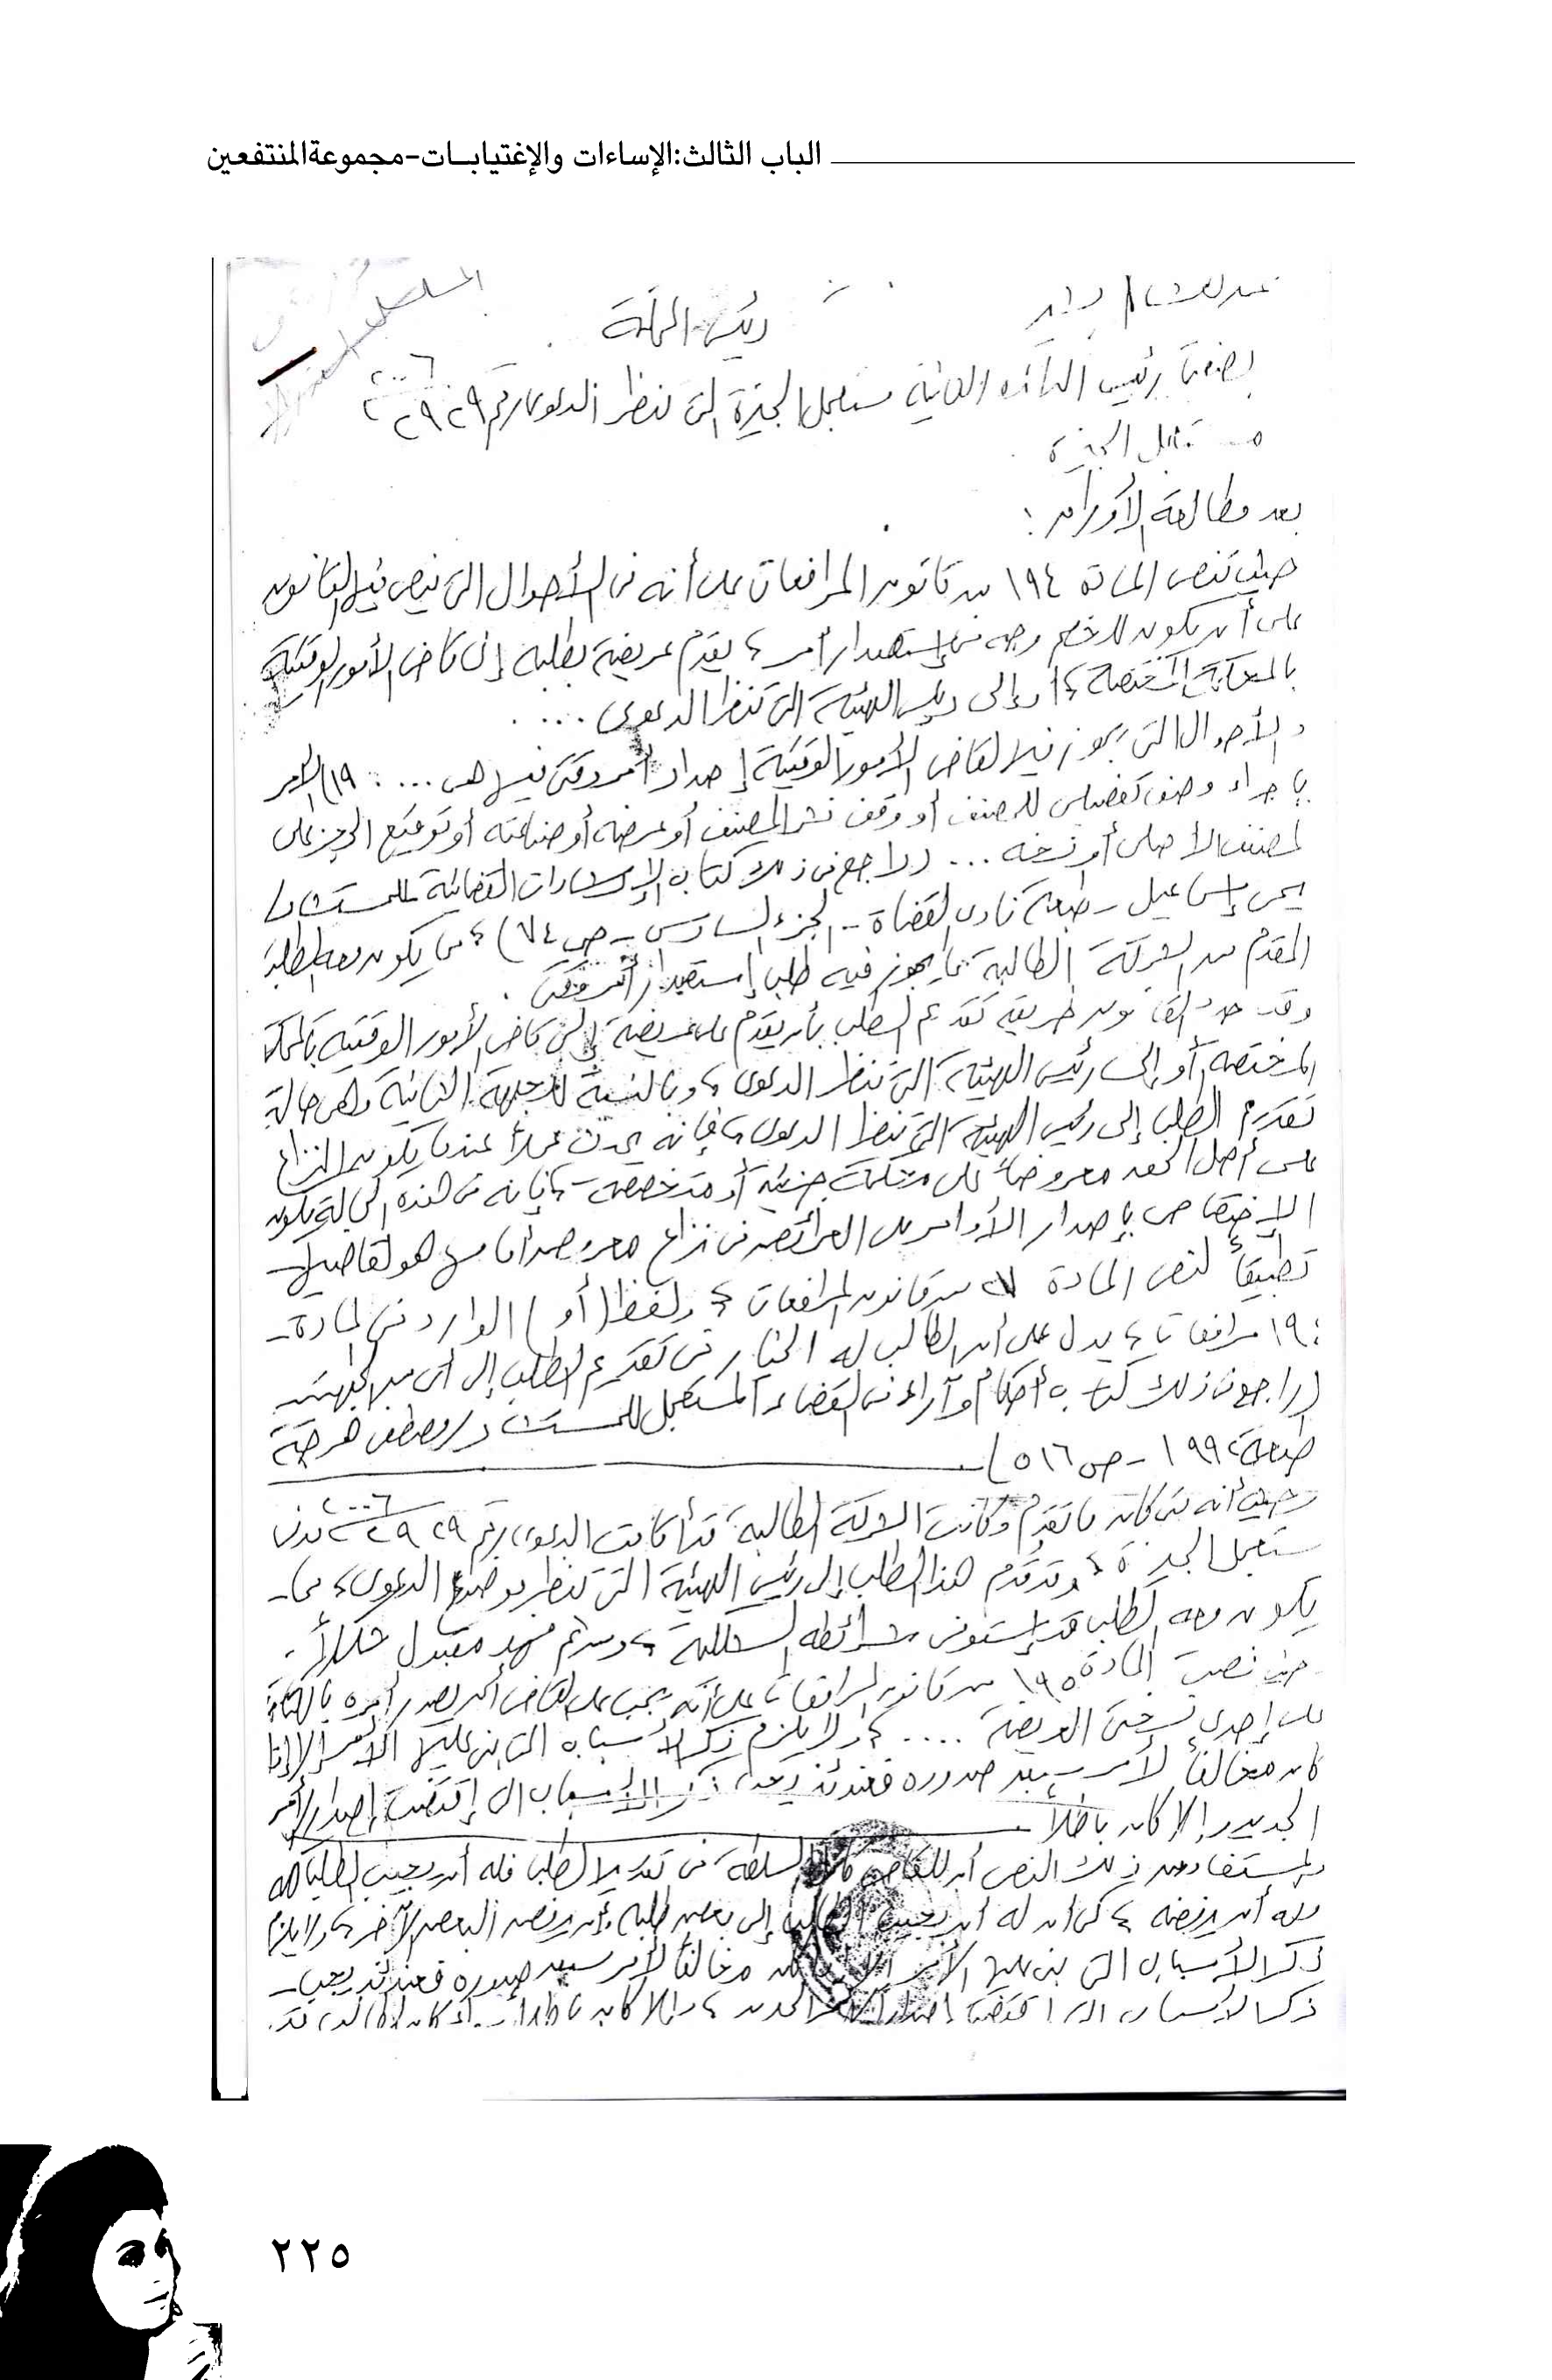 الباب الثالث:الإساءات والإغتيابات-مجموعةالمنتفعين
رئيس المحكمة
بصفتنا رئيس الدائرة الثانية مستعجل الجيزة التى تنظر الدعوى رقم ٢٩٢٩ ٢٠٠٦
مستعجل الجيزة
بعد مطالعة الأوراق :
حيث تنص المادة ١٩٤ من قانون المرافعات على أنه فى الأحوال التى ينص فيها القانون
على أن يكون للخصم وجه فى إستصدار أمر ، يقدم عريضة بطلبه إلى قاضى الأمور الوقتية
بالمحكمة المختصة ، أو إلى رئيس الهيئة التى تنظر الدعوى ....
والأحوال التى يجوز فيها لقاضى الأمور الوقتية إصدار أمر وقتى فيها هى .... : ١٩) الأمر
بإجراء وصف تفصيلى للمصنف أو وقف نشر المصنف أو عرضه أو صناعته أو توقيع الحجز على
المصنف الأصلى أو نسخه ... (راجع فى ذلك كتاب الإرشادات القضائية للمستشار/
يحى إسماعيل - طبعة نادى القضاة - الجزء السادس - ص ٧٤) ، مما يكون معه الطلب
المقدم من الشركة الطالبة مما يجوز فيه طلب إستصدار أمر وقتى .
وقد حدد القانون طريقة تقديم الطلب بأن يقدم على عريضة إلى قاضى الأمور الوقتية بالمحكمة
المختصة أو إلى رئيس الهيئة التى تنظر الدعوى ، وبالنسبة للجهة الثانية وهى حالة
تقديم الطلب إلى رئيس الهيئة التى تنظر الدعوى ، فإنه يحدث عملاً عندما يكون النزاع
على أصل الحق معروضاً على محكمة جزئية أو متخصصة ، فإنه فى هذه الحالة يكون
الإختصاص بإصدار الأوامر على العرائض فى نزاع معروض أمامها هو لقاضيها
تطبيقاً لنص المادة ٢٧ من قانون المرافعات ، ولفظ (أو) الوارد فى المادة
١٩٤ مرافعات ، يدل على أن الطالب له الخيار فى تقديم الطلب إلى أى من الجهتين
(راجع فى ذلك كتاب أحكام وآراء فى القضاء المستعجل للمستشار/ مصطفى هرجة
طبعة ١٩٩٢ - ص ٥١٦)
وحيث أنه متى كان ما تقدم وكانت الشركة الطالبة قد أقامت الدعوى رقم ٢٩٢٩ ٢٠٠٦ مدنى
مستعجل الجيزة ، وقد قدم هذا الطلب إلى رئيس الهيئة التى تنظر موضوع الدعوى ، مما
يكون معه الطلب قد إستوفى شرائطه الشكلية ، ومن ثم فهو مقبول شكلاً .
وحيث نصت المادة ١٩٥ من قانون المرافعات على أنه يجب على القاضى أن يصدر أمره بالكتابة
على إحدى نسختى العريضة .... ، ولا يلزم ذكر الأسباب التى بنى عليها الأمر إلا إذا
كان مخالفاً لأمر سبق صدوره فعندئذ يجب ذكر الأسباب التى إقتضت إصدار الأمر
الجديد وإلا كان باطلاً
والمستفاد من ذلك النص أن للقاضى كامل السلطة فى تقدير الطلب فله أن يجيب الطلب كله
وله أن يرفضه ، كما أن له أن يجيب الطالب إلى بعض طلبه وأن يرفض البعض الآخر ، ولا يلزم
ذكر الأسباب التى بنى عليها الأمر إلا إذا كان مخالفاً لأمر سبق صدوره فعندئذ يجب
ذكر الأسباب التى اقتضت إصدار الأمر الجديد ، وإلا كان باطلاً
٢٢٥